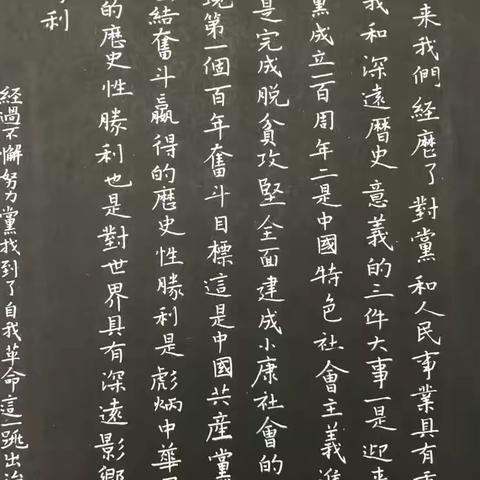 来我們經歷了對黨和人民事業具有
我和深遠暦史意義的三件大事一是迎来
黨成立一百周年二是中國特色社會主義進
是完成脱貧攻堅全面建成小康社會的
現第一個百年奮斗目標這是中國共産黨
結奮斗贏得的歷史性勝利是彪炳中華
的歷史性勝利也是對世界具有深遠影響
利
經過不懈努力黨找到了自我革命這一跳出治